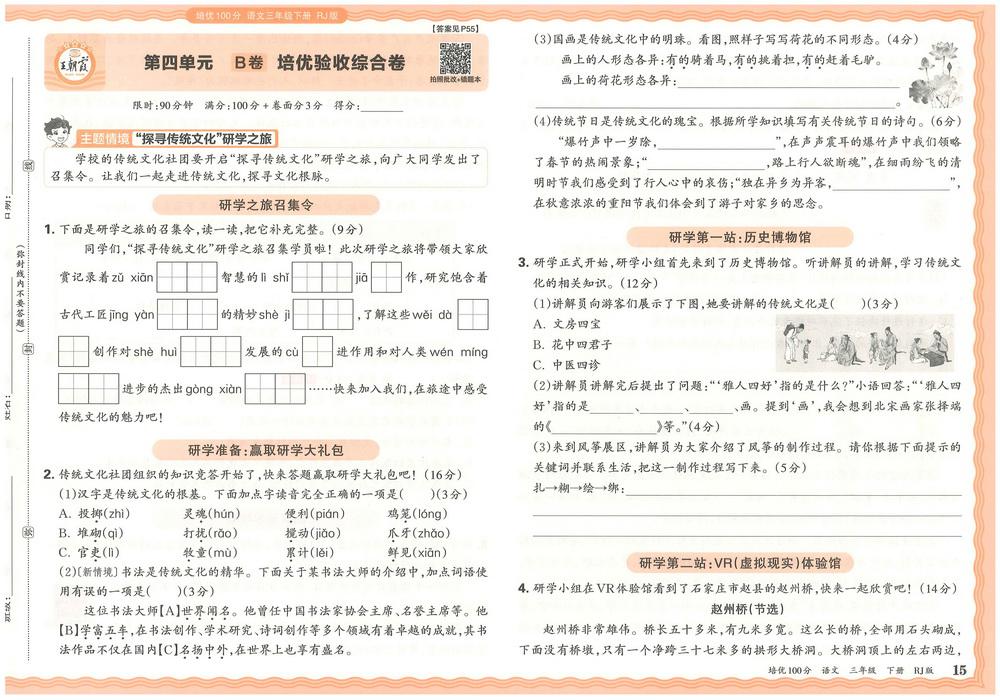 培优100分 语文三年级下册 RJ版
【答案见P55】
王朝霞
第四单元 B卷 培优验收综合卷
拍照批改+错题本
限时:90分钟 满分:100分+卷面分3分 得分:
主题情境 “探寻传统文化”研学之旅
学校的传统文化社团要开启“探寻传统文化”研学之旅,向广大同学发出了
召集令。让我们一起走进传统文化,探寻文化根脉。
研学之旅召集令
1. 下面是研学之旅的召集令,读一读,把它补充完整。(9分)
同学们,“探寻传统文化”研学之旅召集学员啦!此次研学之旅将带领大家欣
赏记录着zǔ xiān 智慧的lì shǐ jiā 作,研究饱含着
古代工匠jīng yàn 的精妙shè jì ,了解这些wěi dà
创作对shè huì 发展的cù 进作用和对人类wén míng
进步的杰出gòng xiàn ……快来加入我们,在旅途中感受
传统文化的魅力吧!
研学准备:赢取研学大礼包
2. 传统文化社团组织的知识竞答开始了,快来答题赢取研学大礼包吧!(16分)
(1)汉字是传统文化的根基。下面加点字读音完全正确的一项是( )(3分)
A. 投掷(zhì) 灵魂(hún) 便利(pián) 鸡笼(lóng)
B. 堆砌(qì) 打扰(rǎo) 搅动(jiǎo) 爪牙(zhǎo)
C. 官吏(lì) 牧童(mù) 累计(lěi) 鲜见(xiān)
(2)〔新情境〕书法是传统文化的精华。下面关于某书法大师的介绍中,加点词语使
用有误的一项是( )(3分)
这位书法大师【A】世界闻名。他曾任中国书法家协会主席、名誉主席等。他
【B】学富五车,在书法创作、学术研究、诗词创作等多个领域有着卓越的成就,其书
法作品不仅在国内【C】名扬中外,在世界上也享有盛名。
(弥封线内不要答题)
线
封
密
姓名:
班级:
(3)国画是传统文化中的明珠。看图,照样子写写荷花的不同形态。(4分)
画上的人形态各异:有的骑着马,有的挑着担,有的赶着毛驴。
画上的荷花形态各异:
。
(4)传统节日是传统文化的瑰宝。根据所学知识填写有关传统节日的诗句。(6分)
“爆竹声中一岁除, ”,在声声震耳的爆竹声中我们领略
了春节的热闹景象;“ ,路上行人欲断魂”,在细雨纷飞的清
明时节我们感受到了行人心中的哀伤;“独在异乡为异客, ”,
在秋意浓浓的重阳节我们体会到了游子对家乡的思念。
研学第一站:历史博物馆
3. 研学正式开始,研学小组首先来到了历史博物馆。听讲解员的讲解,学习传统文
化的相关知识。(12分)
(1)讲解员向游客们展示了下图,她要讲解的传统文化是( )(3分)
A. 文房四宝
B. 花中四君子
C. 中医四诊
(2)讲解员讲解完后提出了问题:“‘雅人四好’指的是什么?”小语回答:“‘雅人四
好’指的是 、 、 、画。提到‘画’,我会想到北宋画家张择端
的《 》等。”(4分)
(3)来到风筝展区,讲解员为大家介绍了风筝的制作过程。请你根据下面提示的
关键词并联系生活,把这一制作过程写下来。(5分)
扎→糊→绘→绑:
研学第二站:VR(虚拟现实)体验馆
4. 研学小组在VR体验馆看到了石家庄市赵县的赵州桥,快来一起欣赏吧!(14分)
赵州桥(节选)
赵州桥非常雄伟。桥长五十多米,有九米多宽。这么长的桥,全部用石头砌成,
下面没有桥墩,只有一个净跨三十七米多的拱形大桥洞。大桥洞顶上的左右两边,
培优100分 语文 三年级 下册 RJ版 15